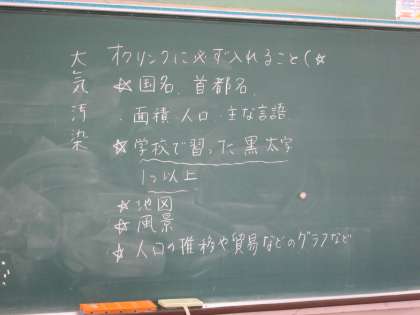 大気汚染
オクリンクに必ず入れること(☆
☆国名、首都名、
・面積・人口・主な言語
☆学校で習った黒太字
1つ以上
☆地図
☆風景
☆人口の推移や貿易などのグラフなど